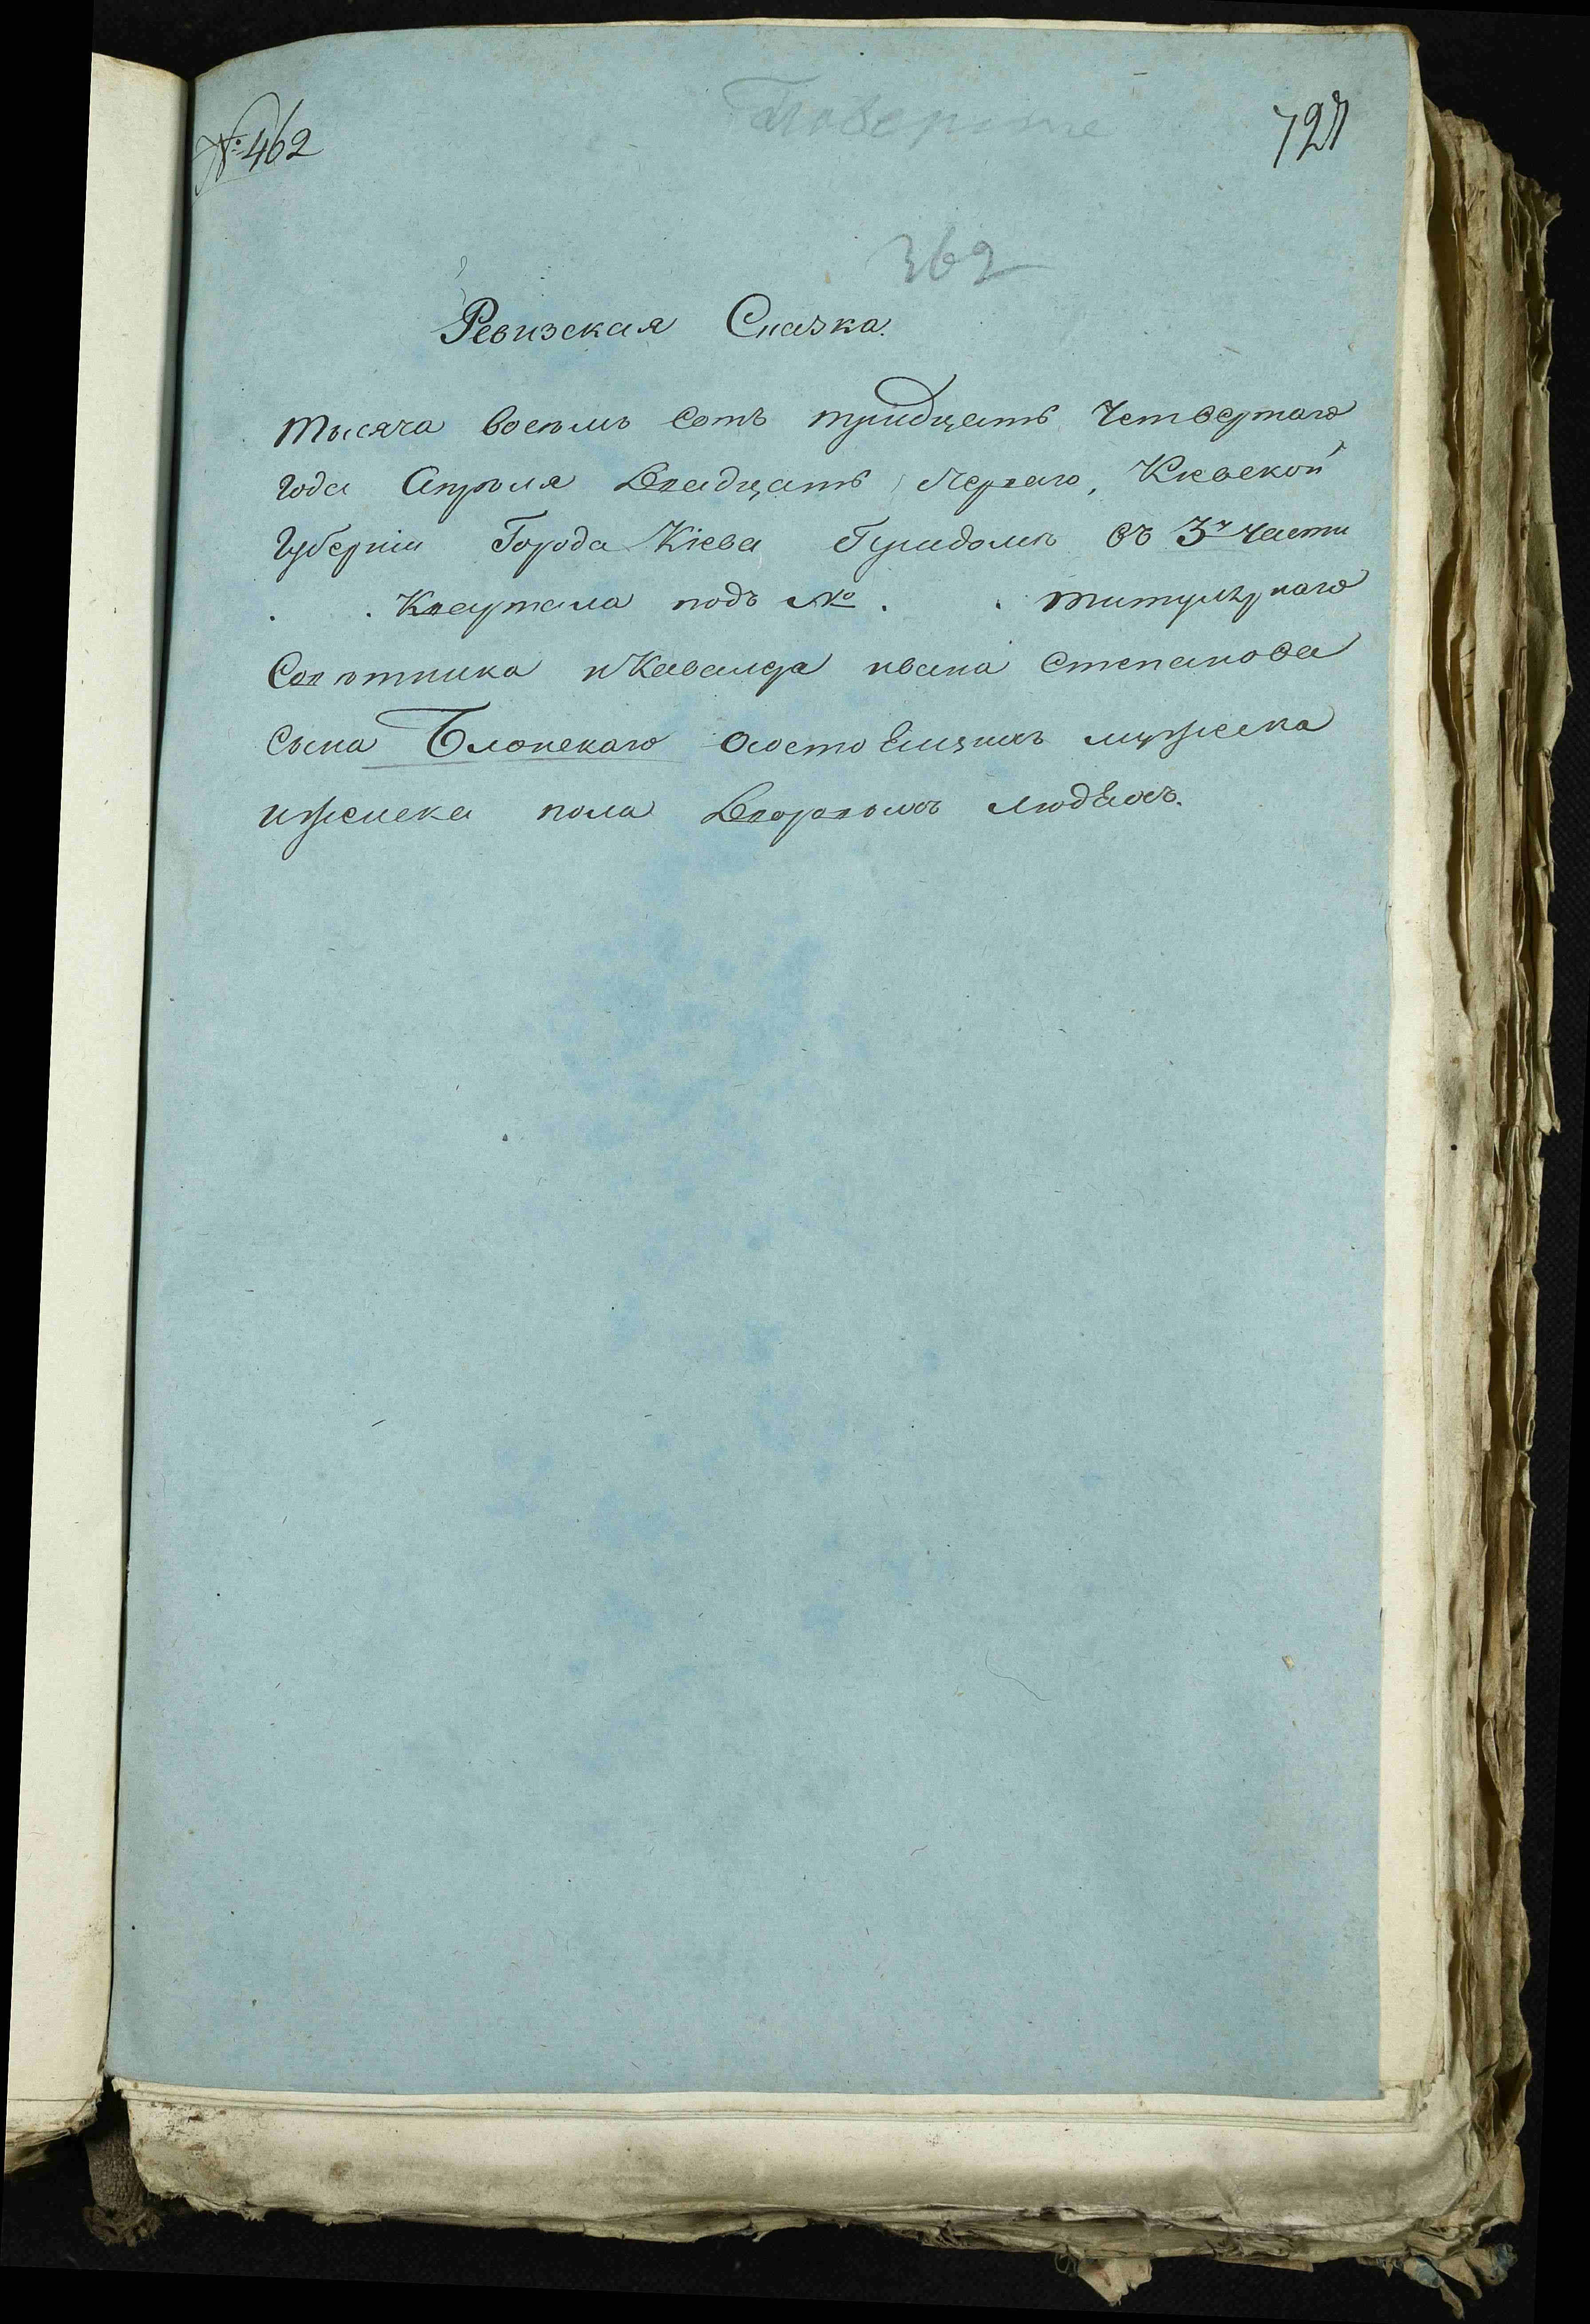 № 462
727
362
Ревизская Сказка.
Тысяча восемь сотъ тридцать Четвертаго
года Апреля Двадцать Перваго, Киевской
Губернии Города Кіева при домѣ въ 3й части
. . Квартала подъ № . . титулярнаго
Советника и Кавалера ивана степанова
сына Блонскаго осостоящихъ мужеска
иженска пола Дворовыхъ людяхъ.